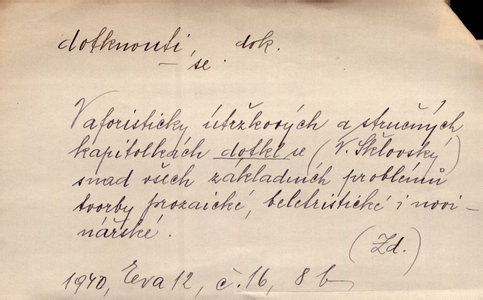 dotknouti, dok.
– se.
V aforisticky útržkových a stručných
kapitolkách dotkl se (V. Šklovský)
snad všech základních problémů
tvorby prozaické, beletristické i novi-
nářské.
(Zd.)
1940, Eva 12, č. 16, 8 b